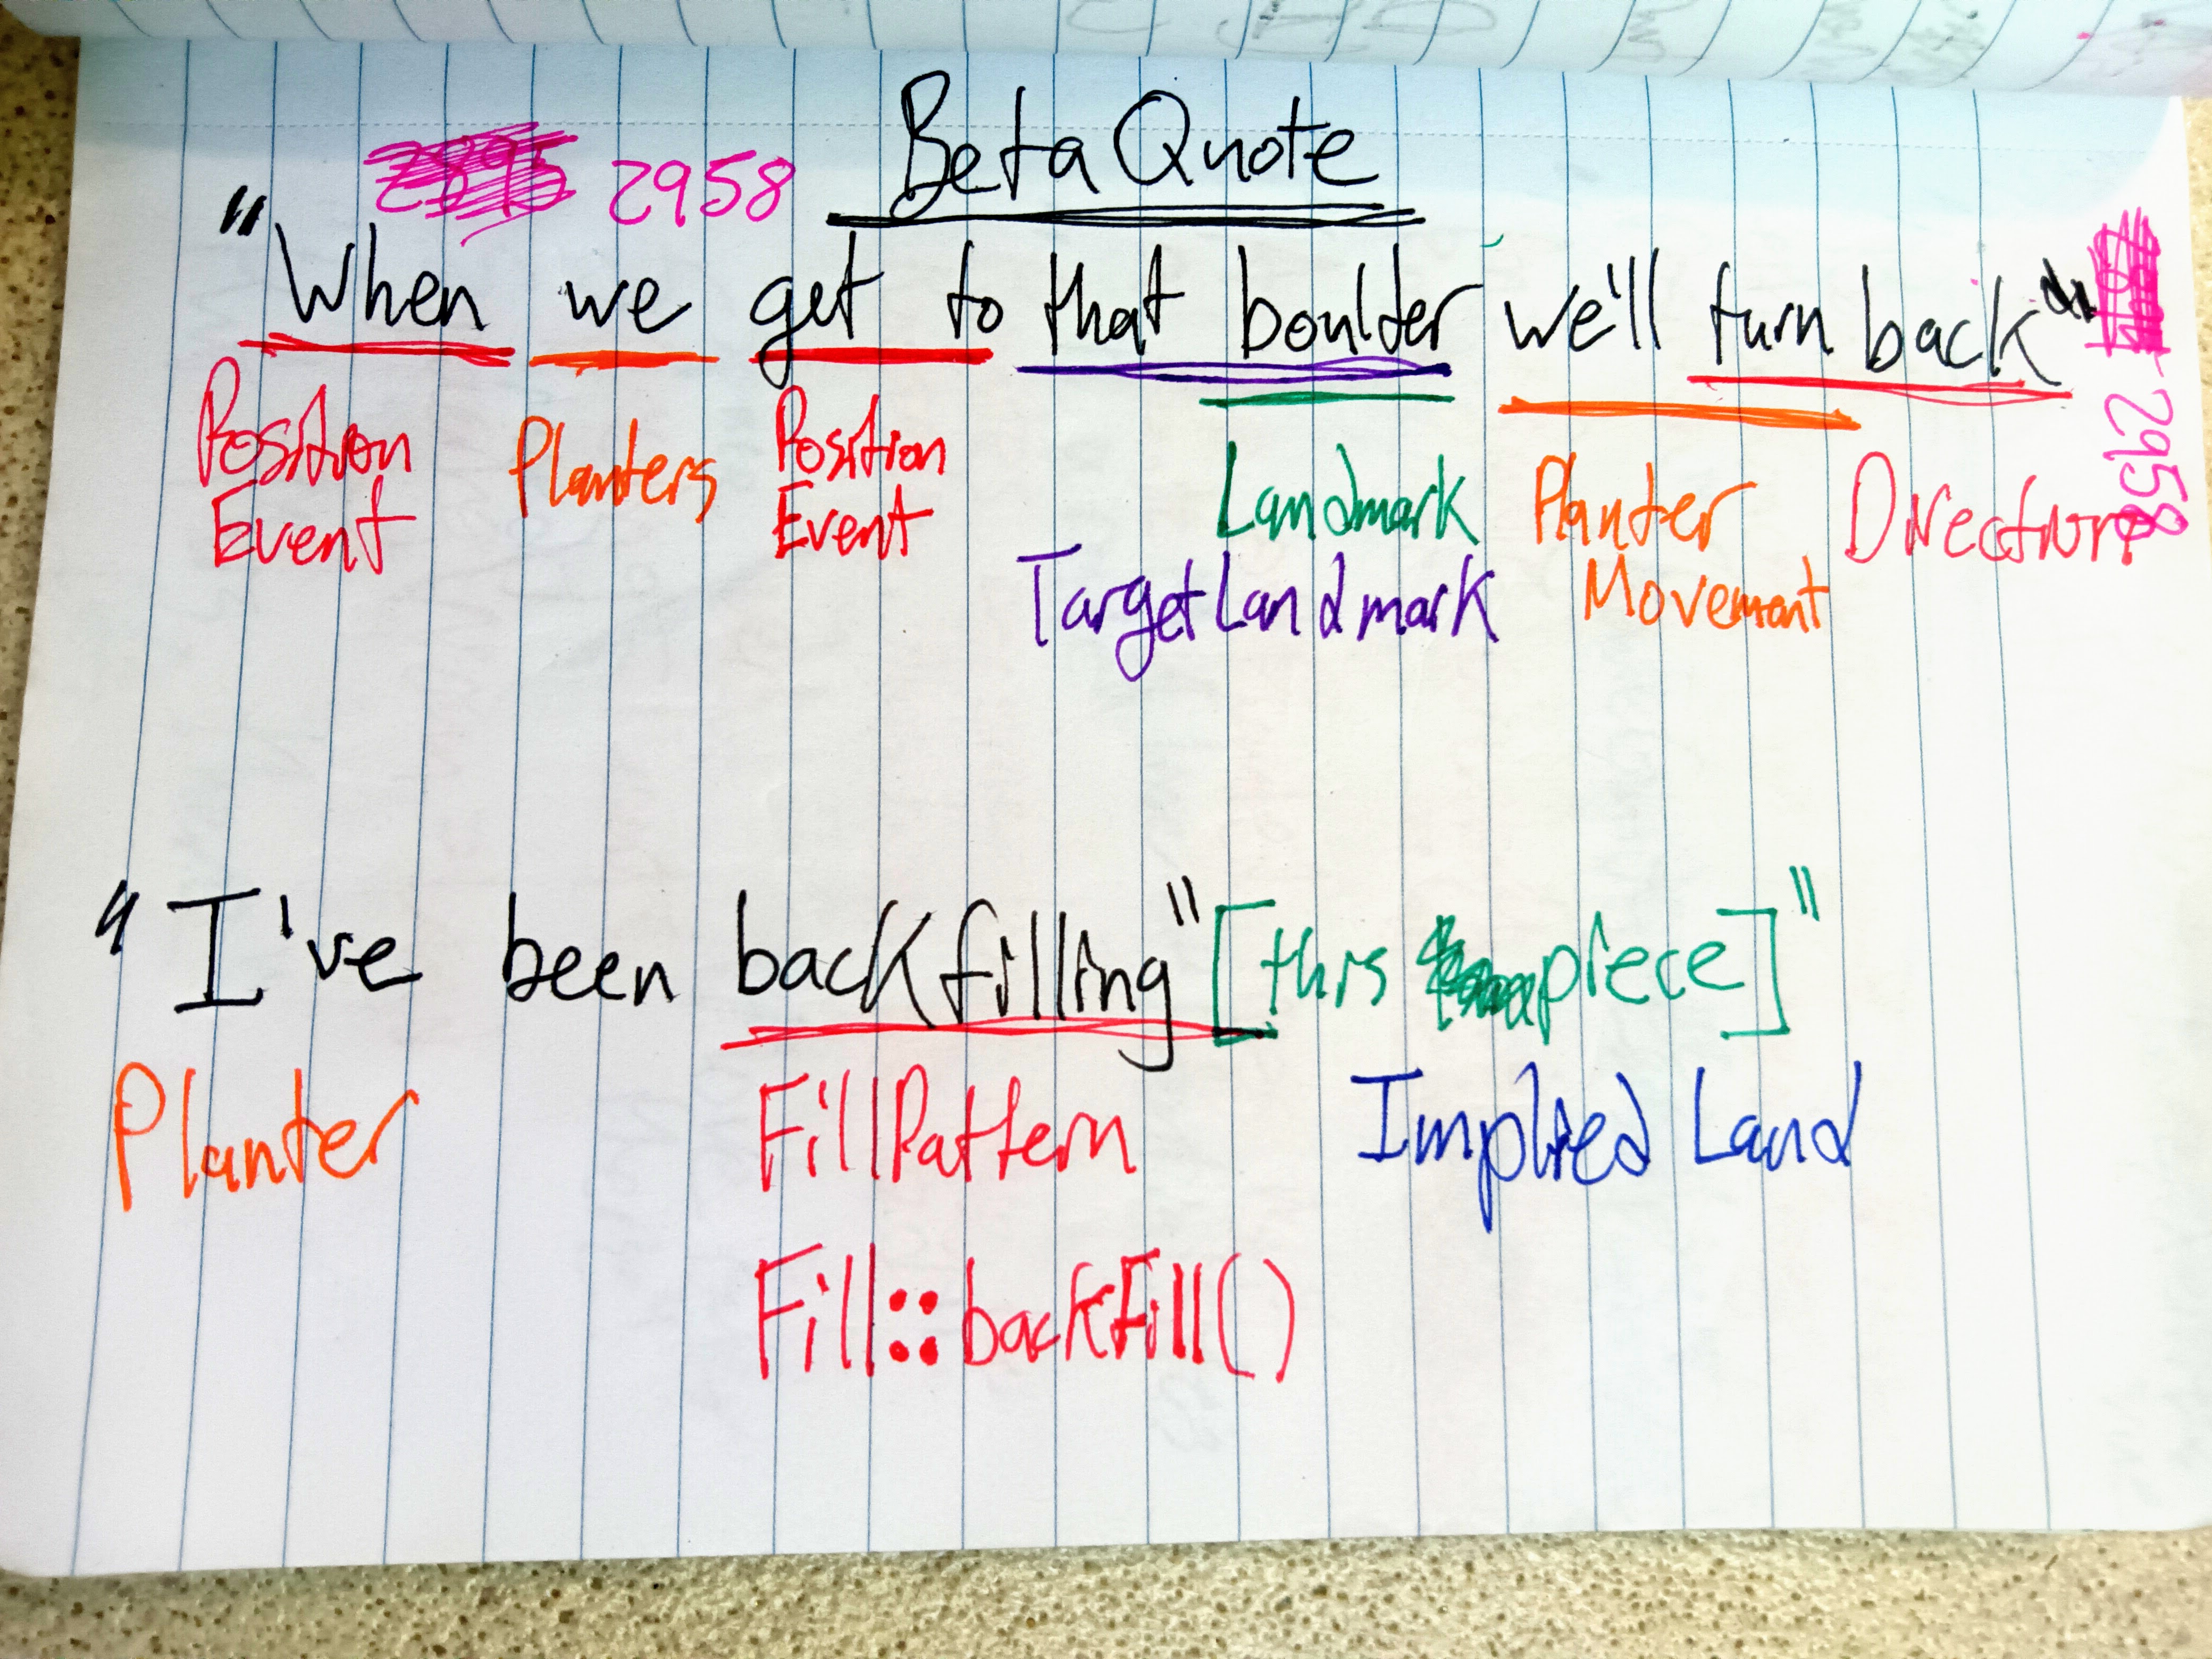 Beta Quote
2958
"When we get to that boulder we'll turn back"
2958
Position Event
Planters
Position Event
Landmark
TargetLandmark
Planter Movement
Direction
"I've been backfilling" [this piece]"
Planter
FillPattern
Implied Land
Fill::backFill()